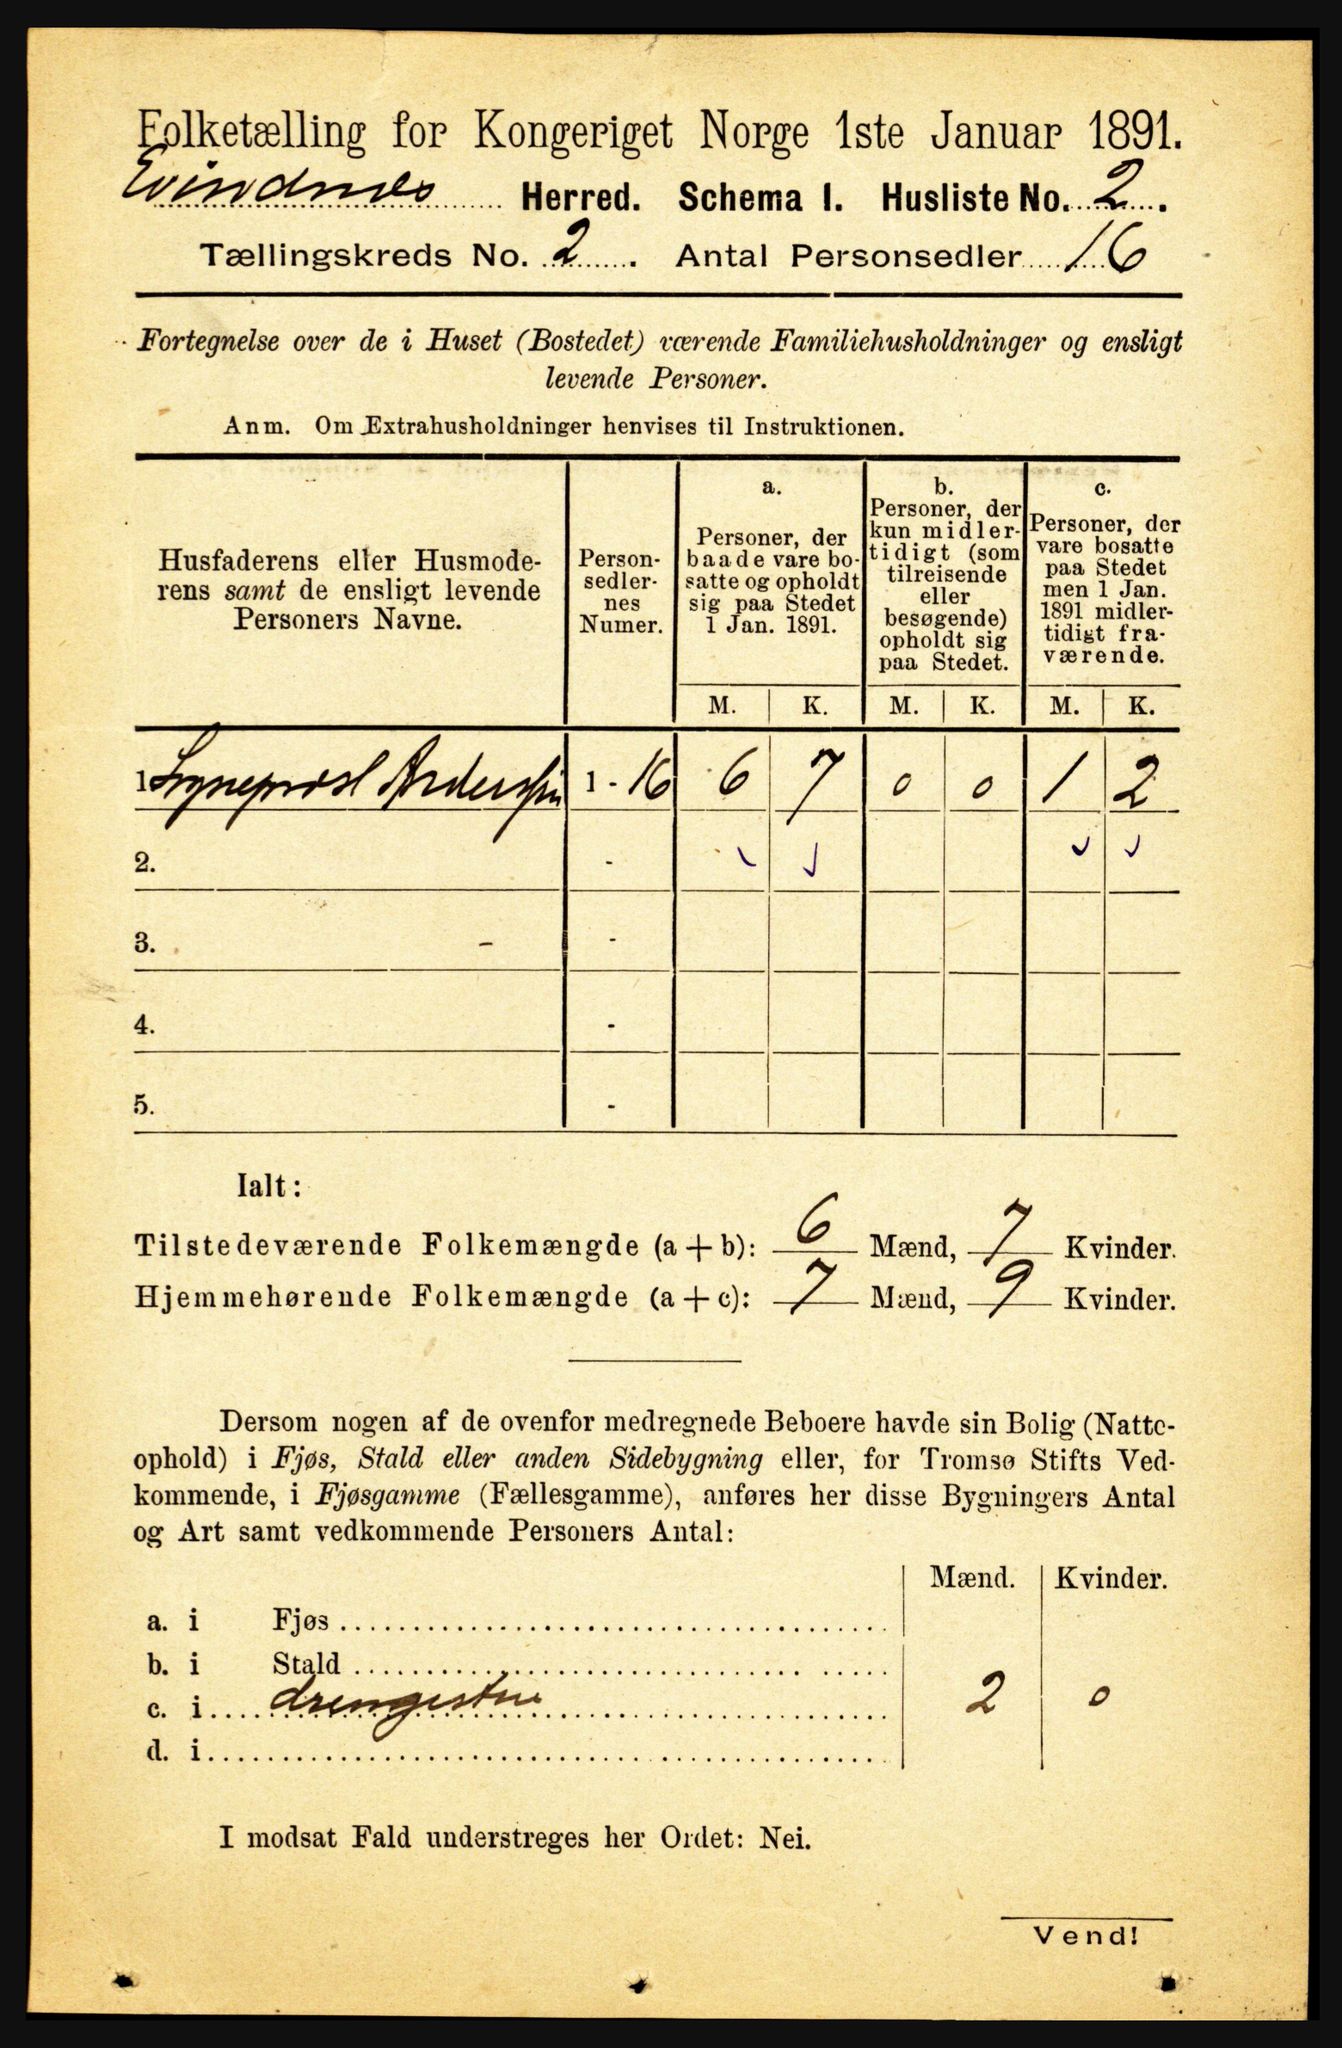 Folketælling for Kongeriget Norge 1ste Januar 1891.
Evindnes Herred. Schema I. Husliste No. 2.
Tællingskreds No. 2. Antal Personsedler 16
Fortegnelse over de i Huset (Bostedet) værende Familiehusholdninger og ensligt
levende Personer.
Anm. Om Extrahusholdninger henvises til Instruktionen.
Husfaderens eller Husmode-
rens samt de ensligt levende
Personers Navne.
Person-
sedler-
nes
Numer.
a.
Personer, der
baade vare bo-
satte og opholdt
sig paa Stedet
1 Jan. 1891.
b.
Personer, der
kun midler-
tidigt (som
tilreisende
eller
besøgende)
opholdt sig
paa Stedet.
c.
Personer, der
vare bosatte
paa Stedet
men 1 Jan.
1891 midler-
tidigt fra-
værende.
M. K. M. K. M. K.
1 Sogneprest Anderssen 1 - 16 6 7 0 0 1 2
2. -
3. - -
4. -
5. -
Ialt:
Tilstedeværende Folkemængde (a + b): 6 Mænd, 7 Kvinder.
Hjemmehørende Folkemængde (a + c): 7 Mænd, 9 Kvinder.
Dersom nogen af de ovenfor medregnede Beboere havde sin Bolig (Natte-
ophold) i Fjøs, Stald eller anden Sidebygning eller, for Tromsø Stifts Ved-
kommende, i Fjøsgamme (Fællesgamme), anføres her disse Bygningers Antal
og Art samt vedkommende Personers Antal:
Mænd. Kvinder.
a. i Fjøs
b. i Stald
c. i drengestue 2 0
d. i
I modsat Fald understreges her Ordet: Nei.
Vend!